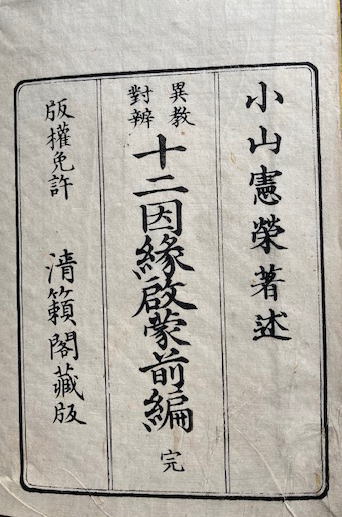 小山憲榮著述
異教
對辨
十二因緣啟蒙前編 完
版權免許 清籟閣藏版